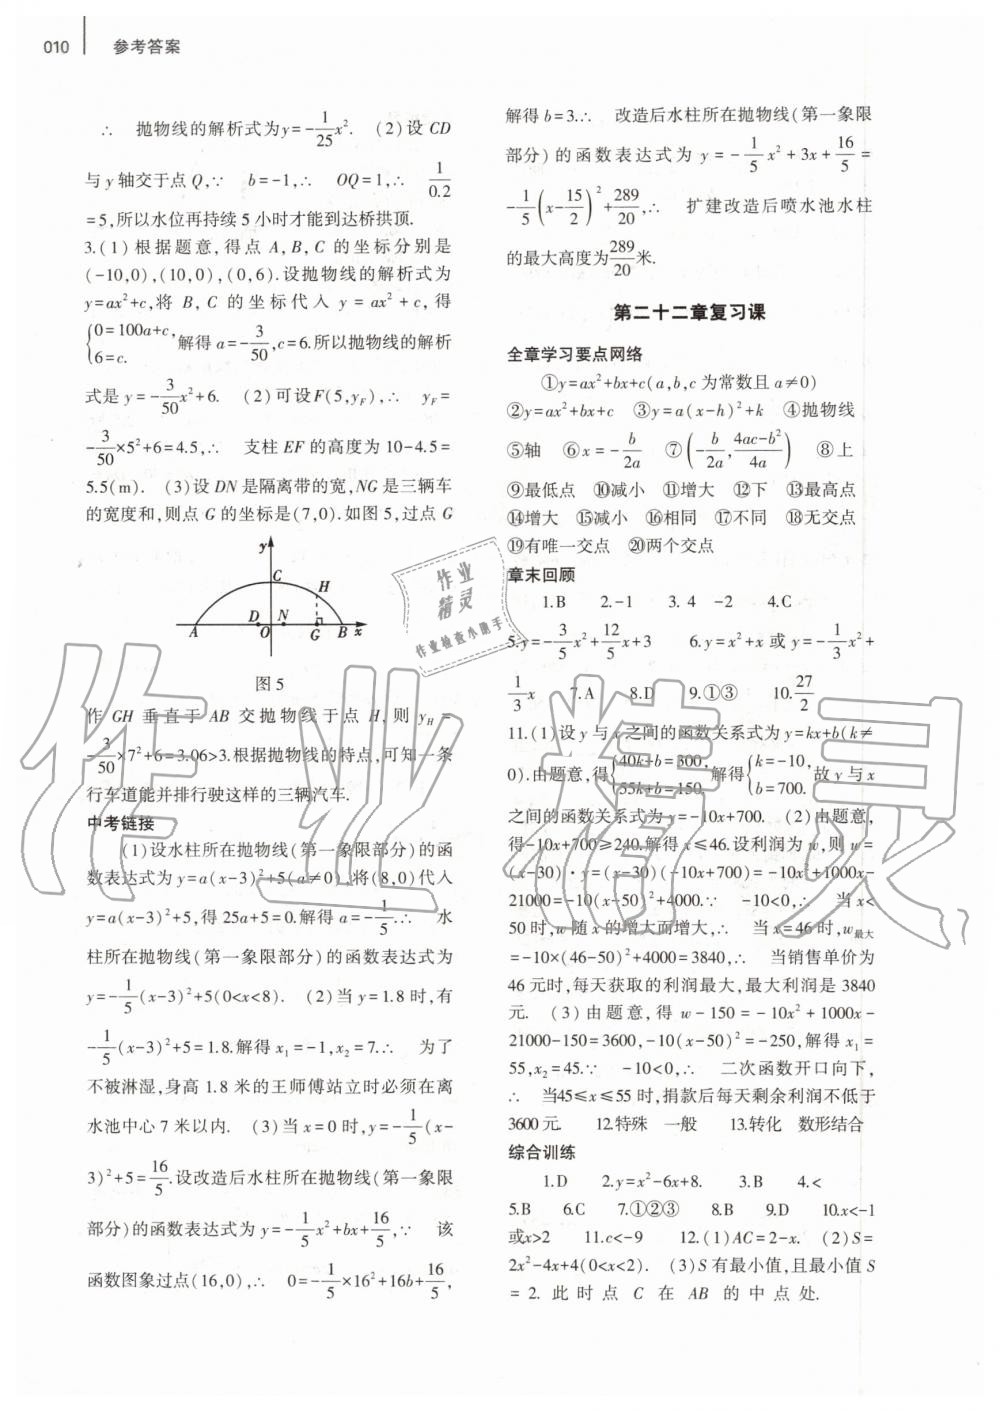 010 参考答案
∴ 抛物线的解析式为y=-1/25x². (2)设 CD
与 y 轴交于点 Q,∵ b=-1,∴ OQ=1,∴ 1/0.2
=5,所以水位再持续 5 小时才能到达桥拱顶.
3.(1) 根据题意,得点 A, B, C 的坐标分别是
(-10,0),(10,0),(0,6).设抛物线的解析式为
y=ax²+c,将 B, C 的坐标代入 y = ax² + c, 得
{0=100a+c, 6=c. 解得 a=-3/50,c=6.所以抛物线的解析
式是 y=-3/50x²+6. (2)可设F(5,yF),∴ yF=
-3/50×5²+6=4.5,∴ 支柱 EF 的高度为 10-4.5=
5.5(m). (3)设 DN 是隔离带的宽,NG 是三辆车
的宽度和,则点 G 的坐标是(7,0).如图 5,过点 G
y C H D N A O G B x
图 5
作 GH 垂直于 AB 交抛物线于点 H, 则 yH =
-3/50×7²+6=3.06>3.根据抛物线的特点,可知一条
行车道能并排行驶这样的三辆汽车.
中考链接
(1)设水柱所在抛物线(第一象限部分)的函
数表达式为 y=a(x-3)²+5(a≠0).将(8,0)代入
y=a(x-3)²+5,得 25a+5=0.解得 a=-1/5.∴ 水
柱所在抛物线(第一象限部分)的函数表达式为
y=-1/5(x-3)²+5(0<x<8). (2)当 y=1.8 时,有
-1/5(x-3)²+5=1.8.解得 x₁=-1,x₂=7.∴ 为了
不被淋湿,身高 1.8 米的王师傅站立时必须在离
水池中心 7 米以内. (3)当 x=0 时,y=-1/5(x-
3)²+5=16/5.设改造后水柱所在抛物线(第一象限
部分)的函数表达式为 y=-1/5x²+bx+16/5,∵ 该
函数图象过点(16,0),∴ 0=-1/5×16²+16b+16/5,
解得 b=3.∴ 改造后水柱所在抛物线(第一象限
部分)的函数表达式为 y=-1/5x²+3x+16/5=
-1/5(x-15/2)²+289/20,∴ 扩建改造后喷水池水柱
的最大高度为289/20米.
第二十二章复习课
全章学习要点网络
①y=ax²+bx+c(a,b,c 为常数且 a≠0)
②y=ax²+bx+c ③y=a(x-h)²+k ④抛物线
⑤轴 ⑥x=-b/2a ⑦(-b/2a,(4ac-b²)/4a) ⑧上
⑨最低点 ⑩减小 ⑪增大 ⑫下 ⑬最高点
⑭增大 ⑮减小 ⑯相同 ⑰不同 ⑱无交点
⑲有唯一交点 ⑳两个交点
章末回顾
1.B 2.-1 3. 4 -2 4.C
5.y=-3/5x²+12/5x+3 6.y=x²+x 或 y=-1/3x²+
1/3x 7.A 8.D 9.①③ 10.27/2
11.(1)设 y 与 x 之间的函数关系式为 y=kx+b(k≠
0).由题意,得{40k+b=300, 55k+b=150, 解得{k=-10, b=700. 故 y 与 x
之间的函数关系式为 y=-10x+700. (2)由题意,
得-10x+700≥240.解得 x≤46.设利润为 w,则 w=
(x-30)·y=(x-30)(-10x+700)=-10x²+1000x-
21000=-10(x-50)²+4000.∵ -10<0,∴ 当 x<
50 时,w 随 x 的增大而增大,∴ 当 x=46 时,w最大
=-10×(46-50)²+4000=3840,∴ 当销售单价为
46 元时,每天获取的利润最大,最大利润是 3840
元. (3)由题意,得 w-150=-10x²+1000x-
21000-150=3600,-10(x-50)²=-250,解得 x₁=
55,x₂=45.∵ -10<0,∴ 二次函数开口向下,
∴ 当45≤x≤55 时,捐款后每天剩余利润不低于
3600元. 12.特殊 一般 13.转化 数形结合
综合训练
1.D 2.y=x²-6x+8. 3.B 4.<
5.B 6.C 7.①②③ 8.B 9.D 10.x<-1
或x>2 11.c<-9 12.(1)AC=2-x. (2)S=
2x²-4x+4(0<x<2). (3)S 有最小值,且最小值 S
= 2. 此时点 C 在 AB 的中点处.
作业精灵
作业
精灵
作业检查小助手